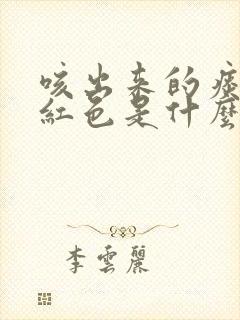 咳出来的痰
紅色是什麼
李雲麗